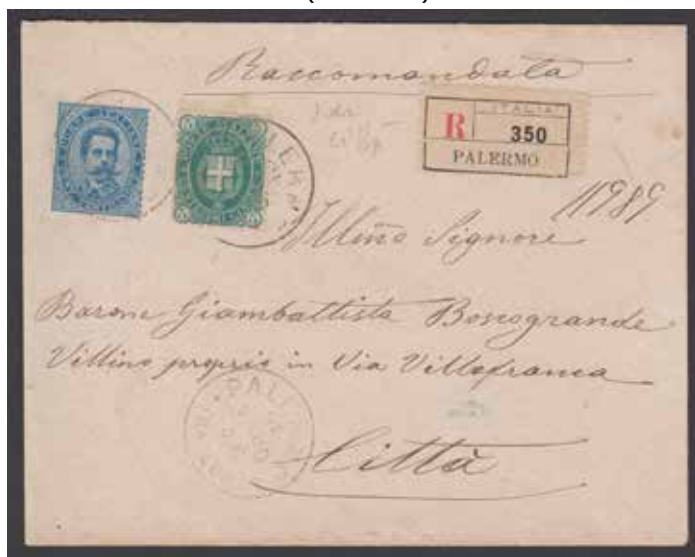 Raccomandata
ITALIA
R 350
PALERMO
11989
Illmo Signore
Barone Giambattista Boscogrande
Villino proprio in Via Villafranca
PAL
Città